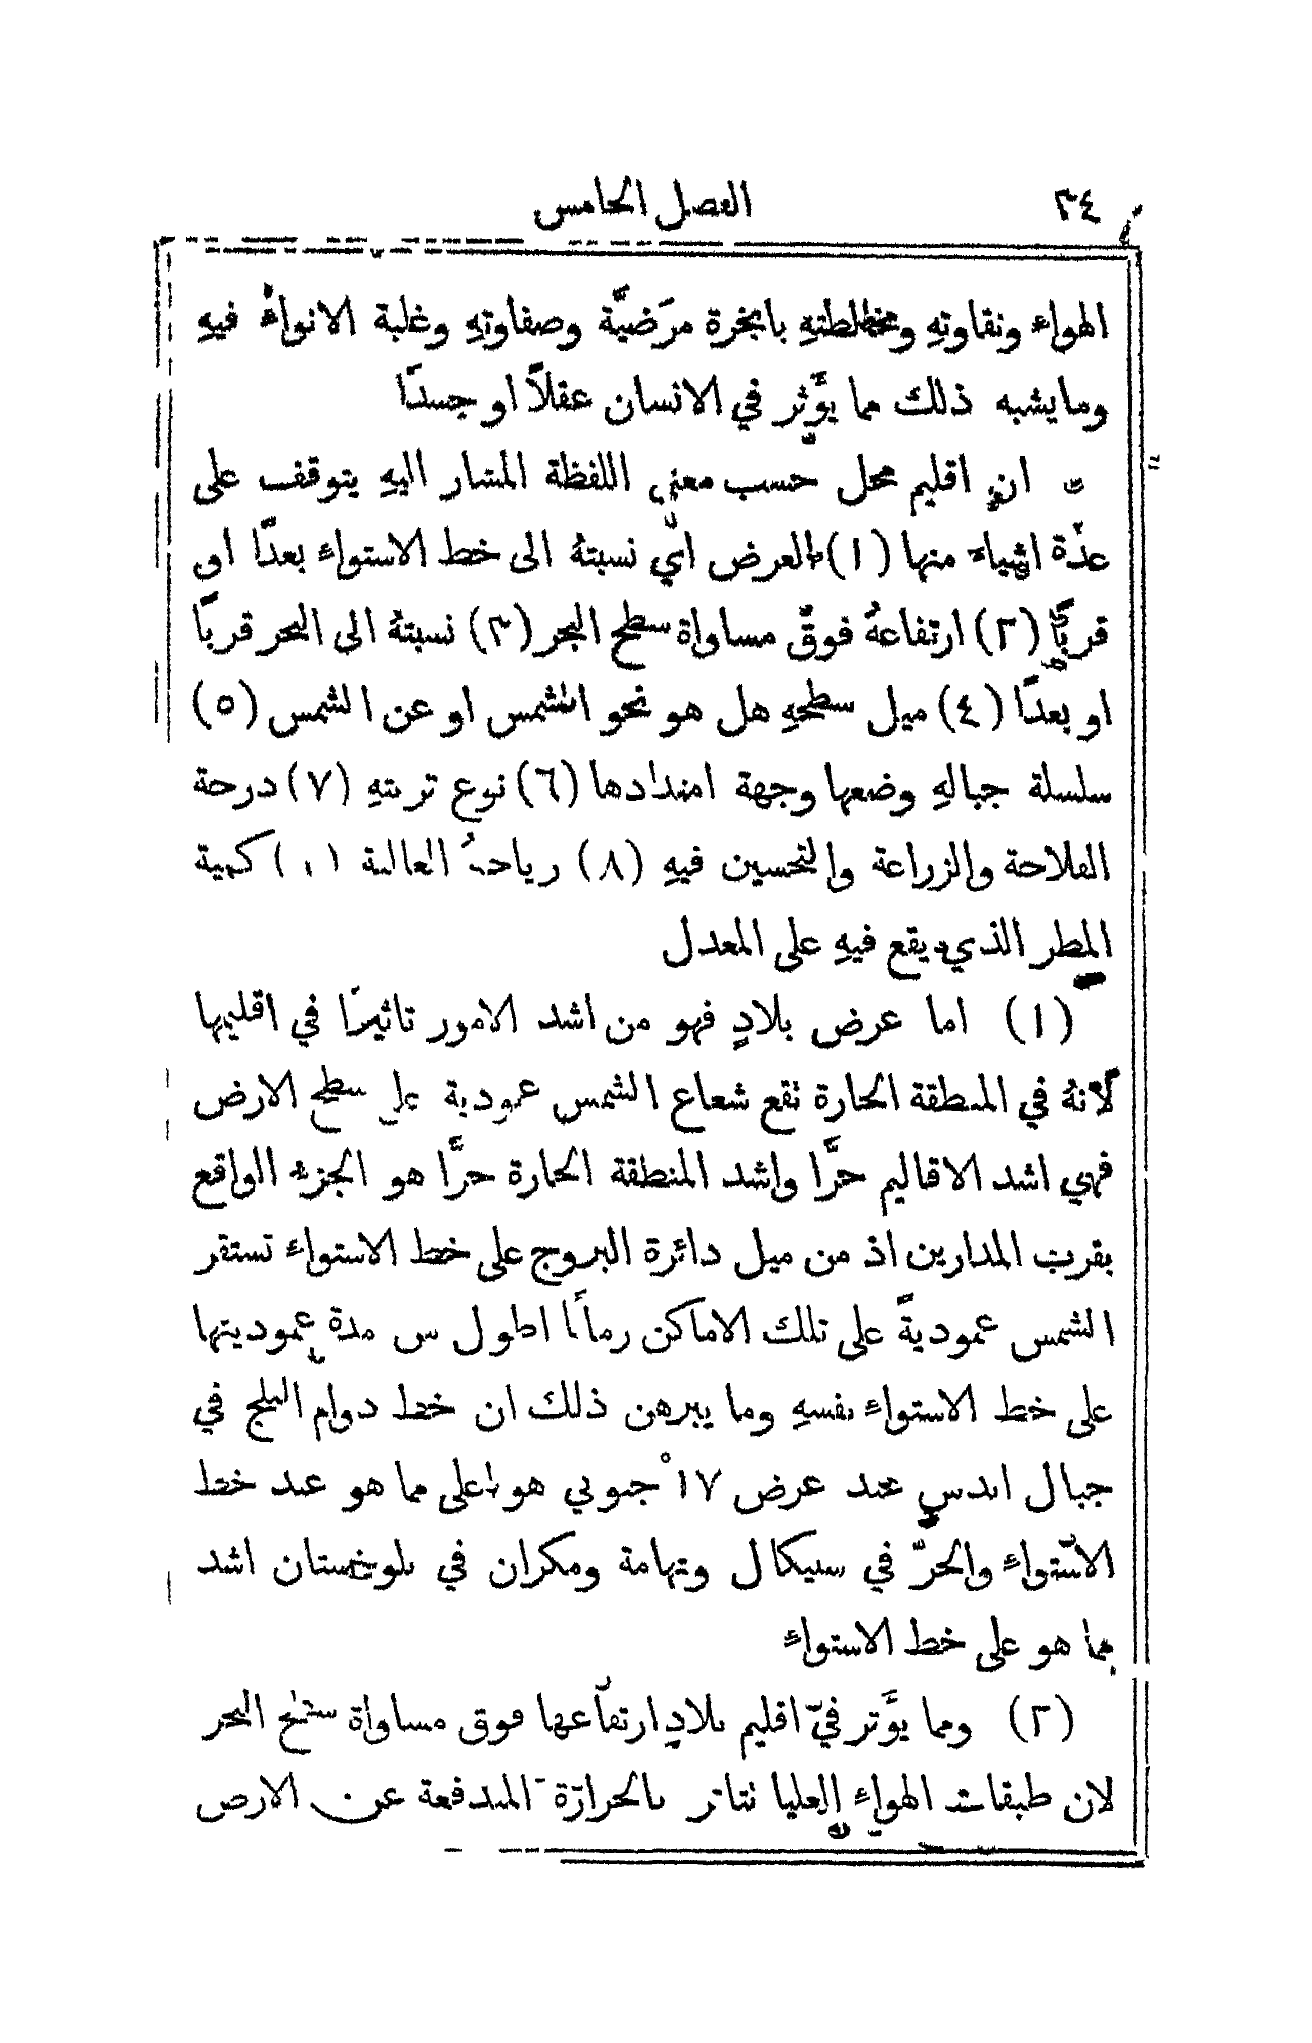 ٣٤ الفصل الخامس
الهواء ونقاوته ومخالطتهِ بابخرة مرَضيَّة وصفاوتهِ وغلبة الانواء فيهِ
وما يشبه ذلك مما يؤَثر في الانسان عقلاً او جسدًا
ان اقليم محل حسب معنى اللفظة المشار اليهِ يتوقف على
عدَّة اشياء منها (١) العرض اي نسبتهُ الى خط الاستواءُ بعدًا او
قربًا (٢) ارتفاعهُ فوق مساواة سطح البحر (٣) نسبتهُ الى البحر قربًا
او بعدًا (٤) ميل سطحهِ هل هو نحو الشمس او عن الشمس (٥)
سلسلة جبالهِ وضعها وجهة امتدادها (٦) نوع تربتهِ (٧) درجة
الفلاحة والزراعة والتحسين فيهِ (٨) رياحهُ الغالبة ( ) كمية
المطر الذي يقع فيهِ على المعدل
(١) اما عرض بلادٍ فهو من اشد الامور تاثيرًا في اقليمها
لانهُ في المنطقة الحارة تقع شعاع الشمس عمودية على سطح الارض
فهي اشد الاقاليم حرًّا واشد المنطقة الحارة حرًّا هو الجزء الواقع
بقرب المدارين اذ من ميل دائرة البروج على خط الاستواءُ تستقر
الشمس عموديةً على تلك الاماكن زمانًا اطول من مدة عموديتها
على خط الاستواءُ نفسهِ وما يبرهن ذلك ان خط دوام الثلج في
جبال اندس عند عرض ١٧° جنوبي هو اعلى مما هو عند خط
الاستواءُ والحرّ في سنيكال وتهامة ومكران في بلوخستان اشد
مما هو على خط الاستواءُ
(٢) ومما يؤَثر في اقليم بلادٍ ارتفاعها فوق مساواة سطح البحر
لان طبقات الهواءُ العليا تتاثر بالحرارة المندفعة عن الارض